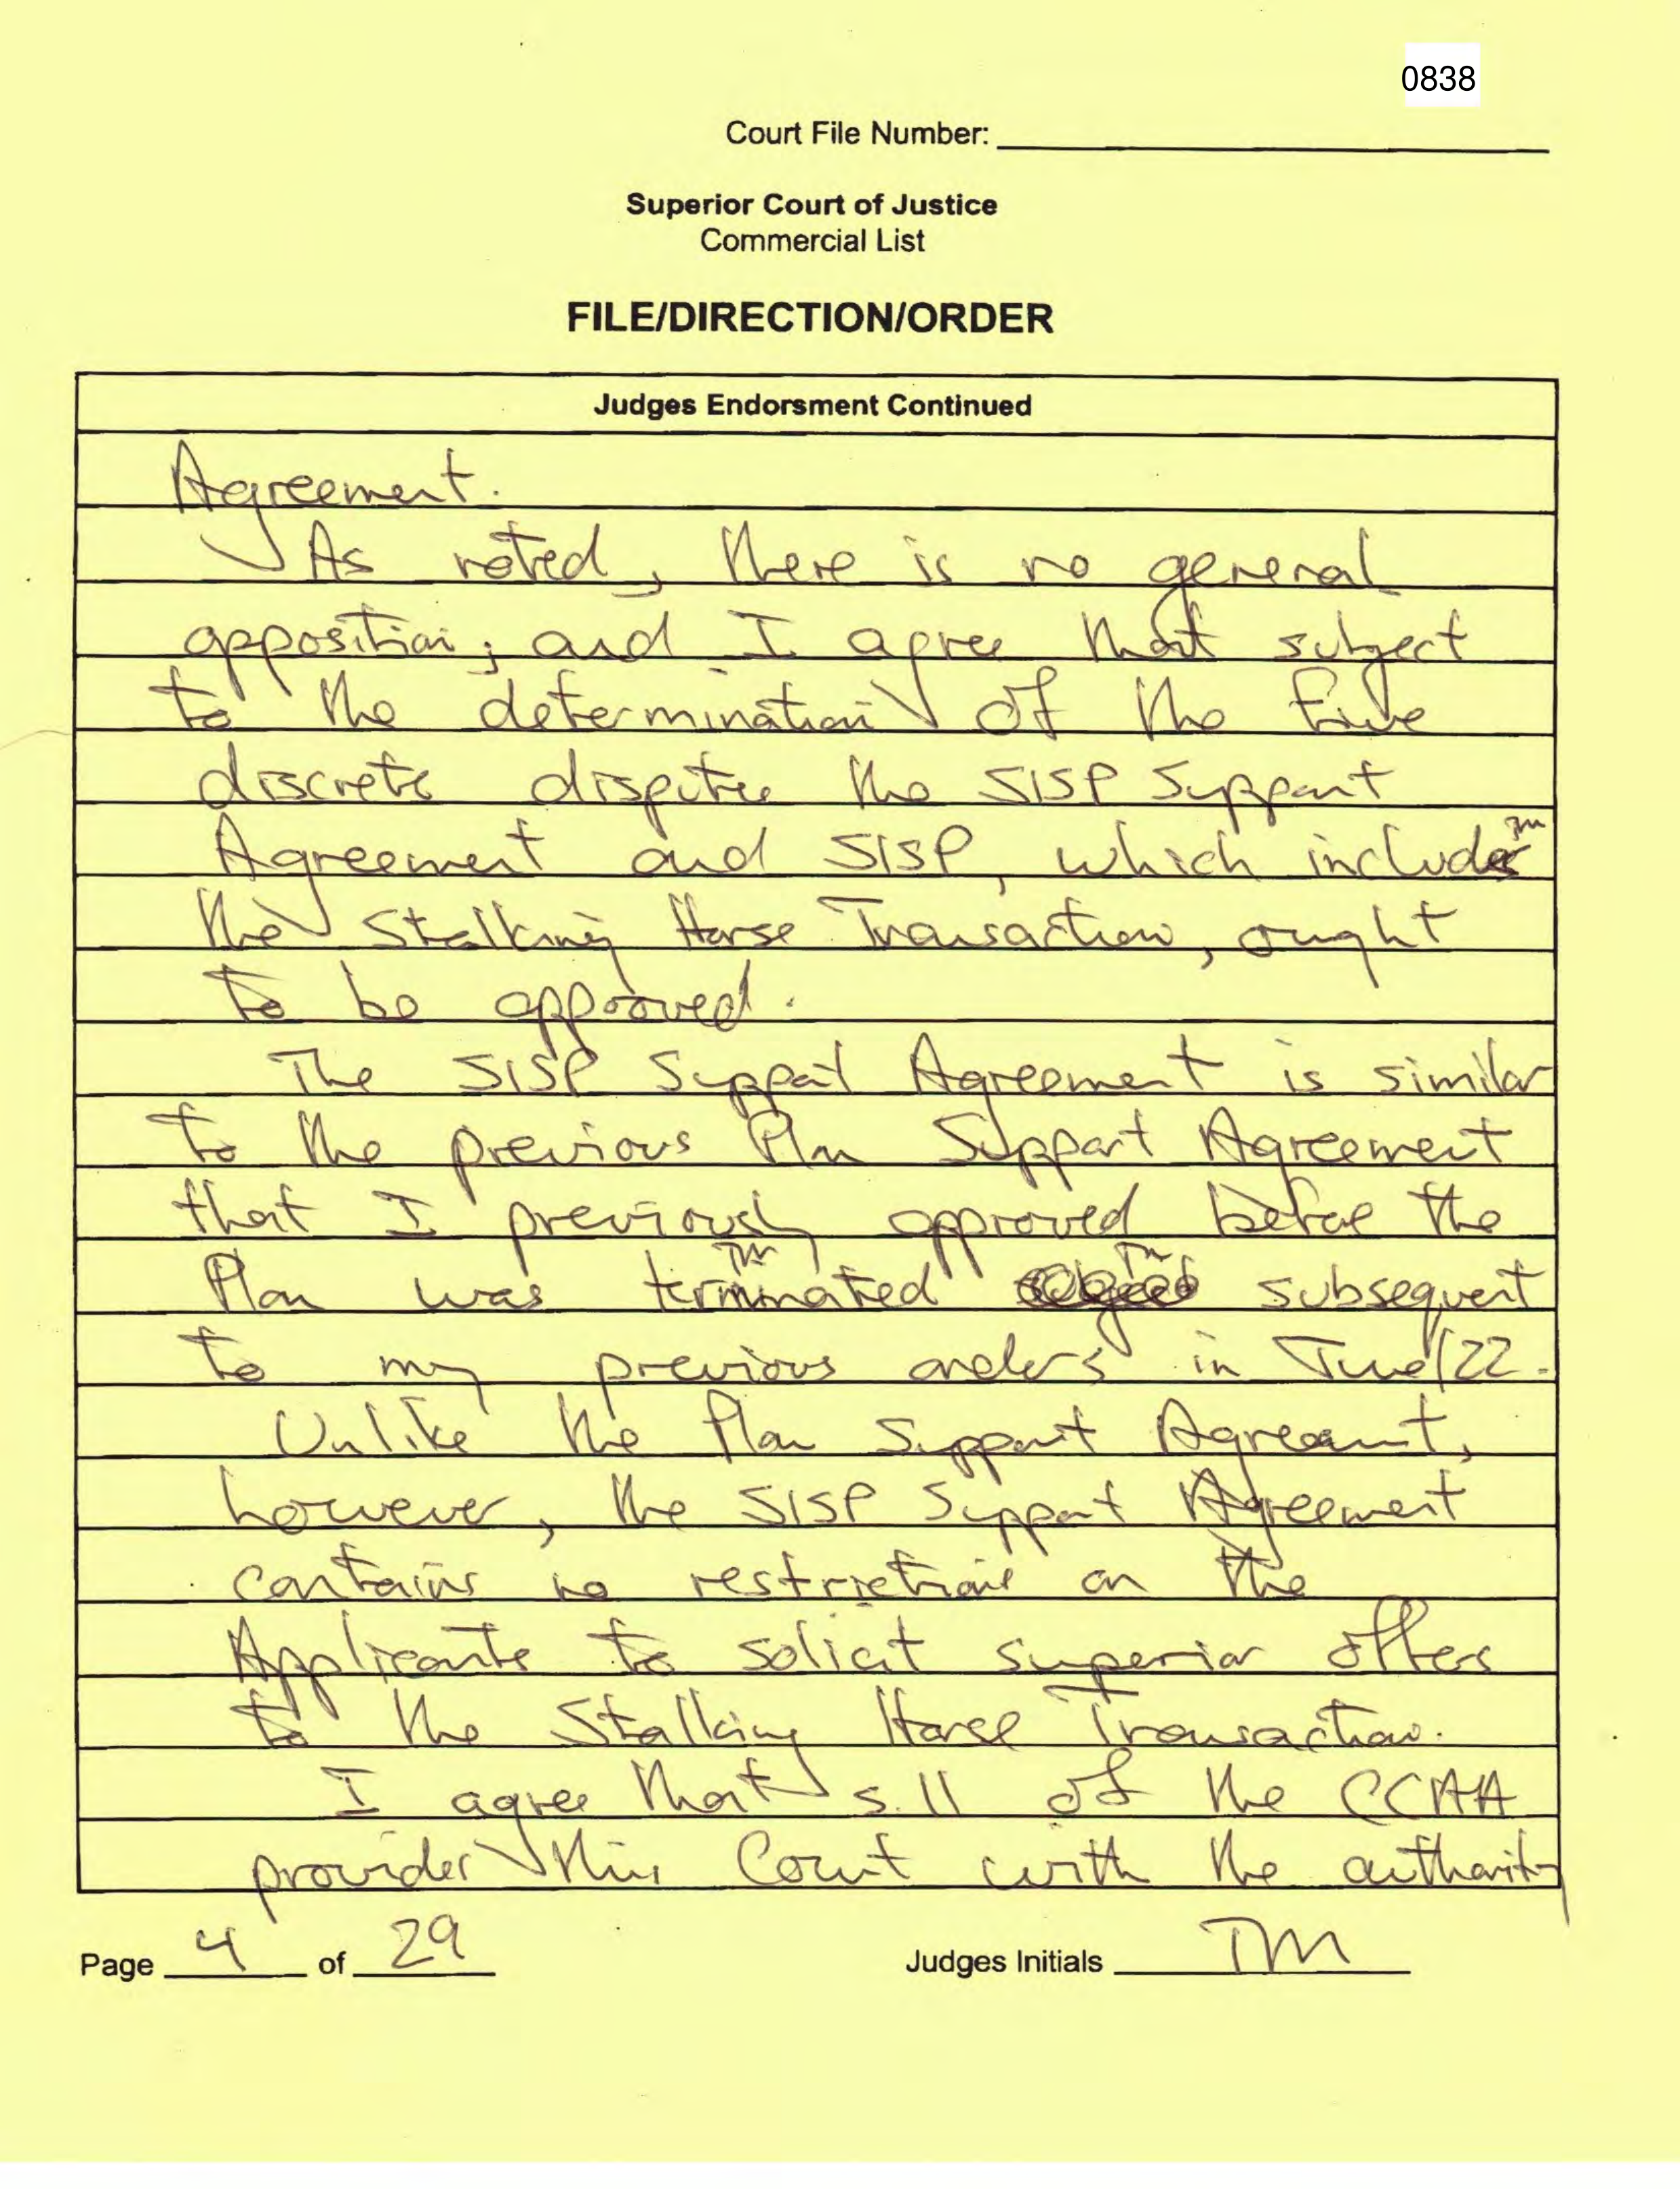 0838
Court File Number:
Superior Court of Justice
Commercial List
FILE/DIRECTION/ORDER
Judges Endorsment Continued
Agreement.
As noted, there is no general
opposition; and I agree that subject
to the determination of the five
discrete disputes the SISP Support
Agreement and SISP, which includes TM
the Stalking Horse Transaction, ought
to be approved.
The SISP Support Agreement is similar
to the previous Plan Support Agreement
that I previously approved before the
TM TM
Plan was terminated subsequent
to my previous orders in June/22.
Unlike the Plan Support Agreement,
however, the SISP Support Agreement
contains no restrictions on the
Applicants to solicit superior offers
to the Stalking Horse Transaction.
I agree that s. 11 of the CCAA
provides this Court with the authority
Page 4 of 29 Judges Initials TM